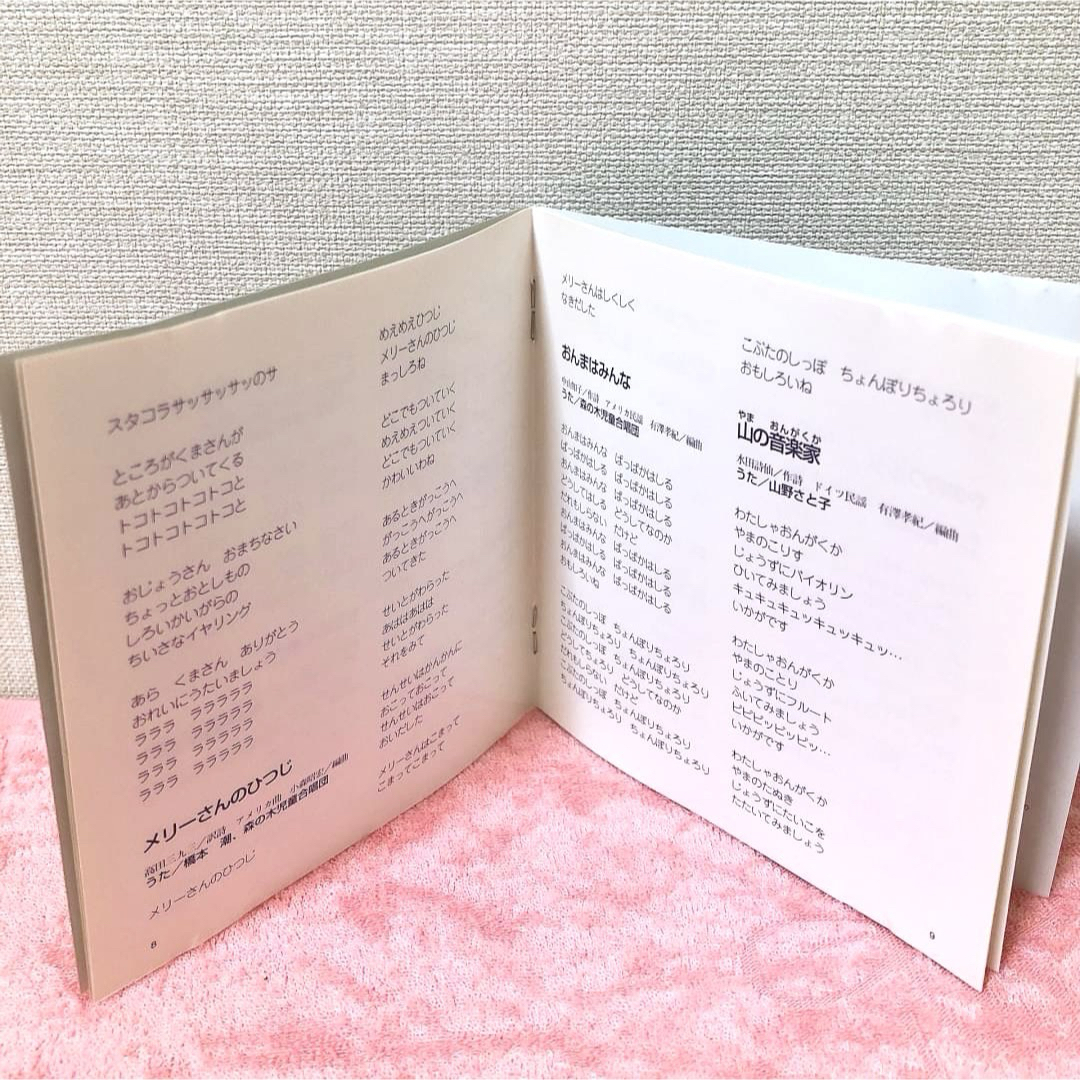 スタコラサッサッサッのサ
ところがくまさんが
あとからついてくる
トコトコトコトコと
トコトコトコトコと
おじょうさん　おまちなさい
ちょっとおとしもの
しろいかいがらの
ちいさなイヤリング
あら　くまさん　ありがとう
おれいにうたいましょう
ラララ　ラララララ
ラララ　ラララララ
ラララ　ラララララ
ラララ　ラララララ
メリーさんのひつじ
高田三九三／訳詩　アメリカ曲　小森昭宏／編曲
うた／橋本　潮、森の木児童合唱団
メリーさんのひつじ
8
めえめえひつじ
メリーさんのひつじ
まっしろね
どこでもついていく
めえめえついていく
どこでもついていく
かわいいわね
あるときがっこうへ
がっこうへがっこうへ
あるときがっこうへ
ついてきた
せいとがわらった
あははあはは
せいとがわらった
それをみて
せんせいはかんかんに
おこっておこって
せんせいはおこって
おいだした
メリーさんはこまって
こまってこまって
メリーさんはしくしく
なきだした
おんまはみんな
中山知子／作詩　アメリカ民謡　有澤孝紀／編曲
うた／森の木児童合唱団
おんまはみんな　ぱっぱかはしる
ぱっぱかはしる　ぱっぱかはしる
おんまはみんな　ぱっぱかはしる
どうしてはしる　どうしてなのか
だれもしらない　だけど
おんまはみんな　ぱっぱかはしる
ぱっぱかはしる　ぱっぱかはしる
おんまはみんな　ぱっぱかはしる
おもしろいね
こぶたのしっぽ　ちょんぼりちょろり
ちょんぼりちょろり　ちょんぼりちょろり
こぶたのしっぽ　ちょんぼりちょろり
どうしてちょろり　どうしてなのか
だれもしらない　だけど
こぶたのしっぽ　ちょんぼりちょろり
ちょんぼりちょろり　ちょんぼりちょろり
こぶたのしっぽ　ちょんぼりちょろり
おもしろいね
やま　おんがくか
山の音楽家
水田詩仙／作詩　ドイツ民謡　有澤孝紀／編曲
うた／山野さと子
わたしゃおんがくか
やまのこりす
じょうずにバイオリン
ひいてみましょう
キュキュキュッキュッキュッ…
いかがです
わたしゃおんがくか
やまのことり
じょうずにフルート
ふいてみましょう
ピピピッピッピッ…
いかがです
わたしゃおんがくか
やまのたぬき
じょうずにたいこを
たたいてみましょう
9